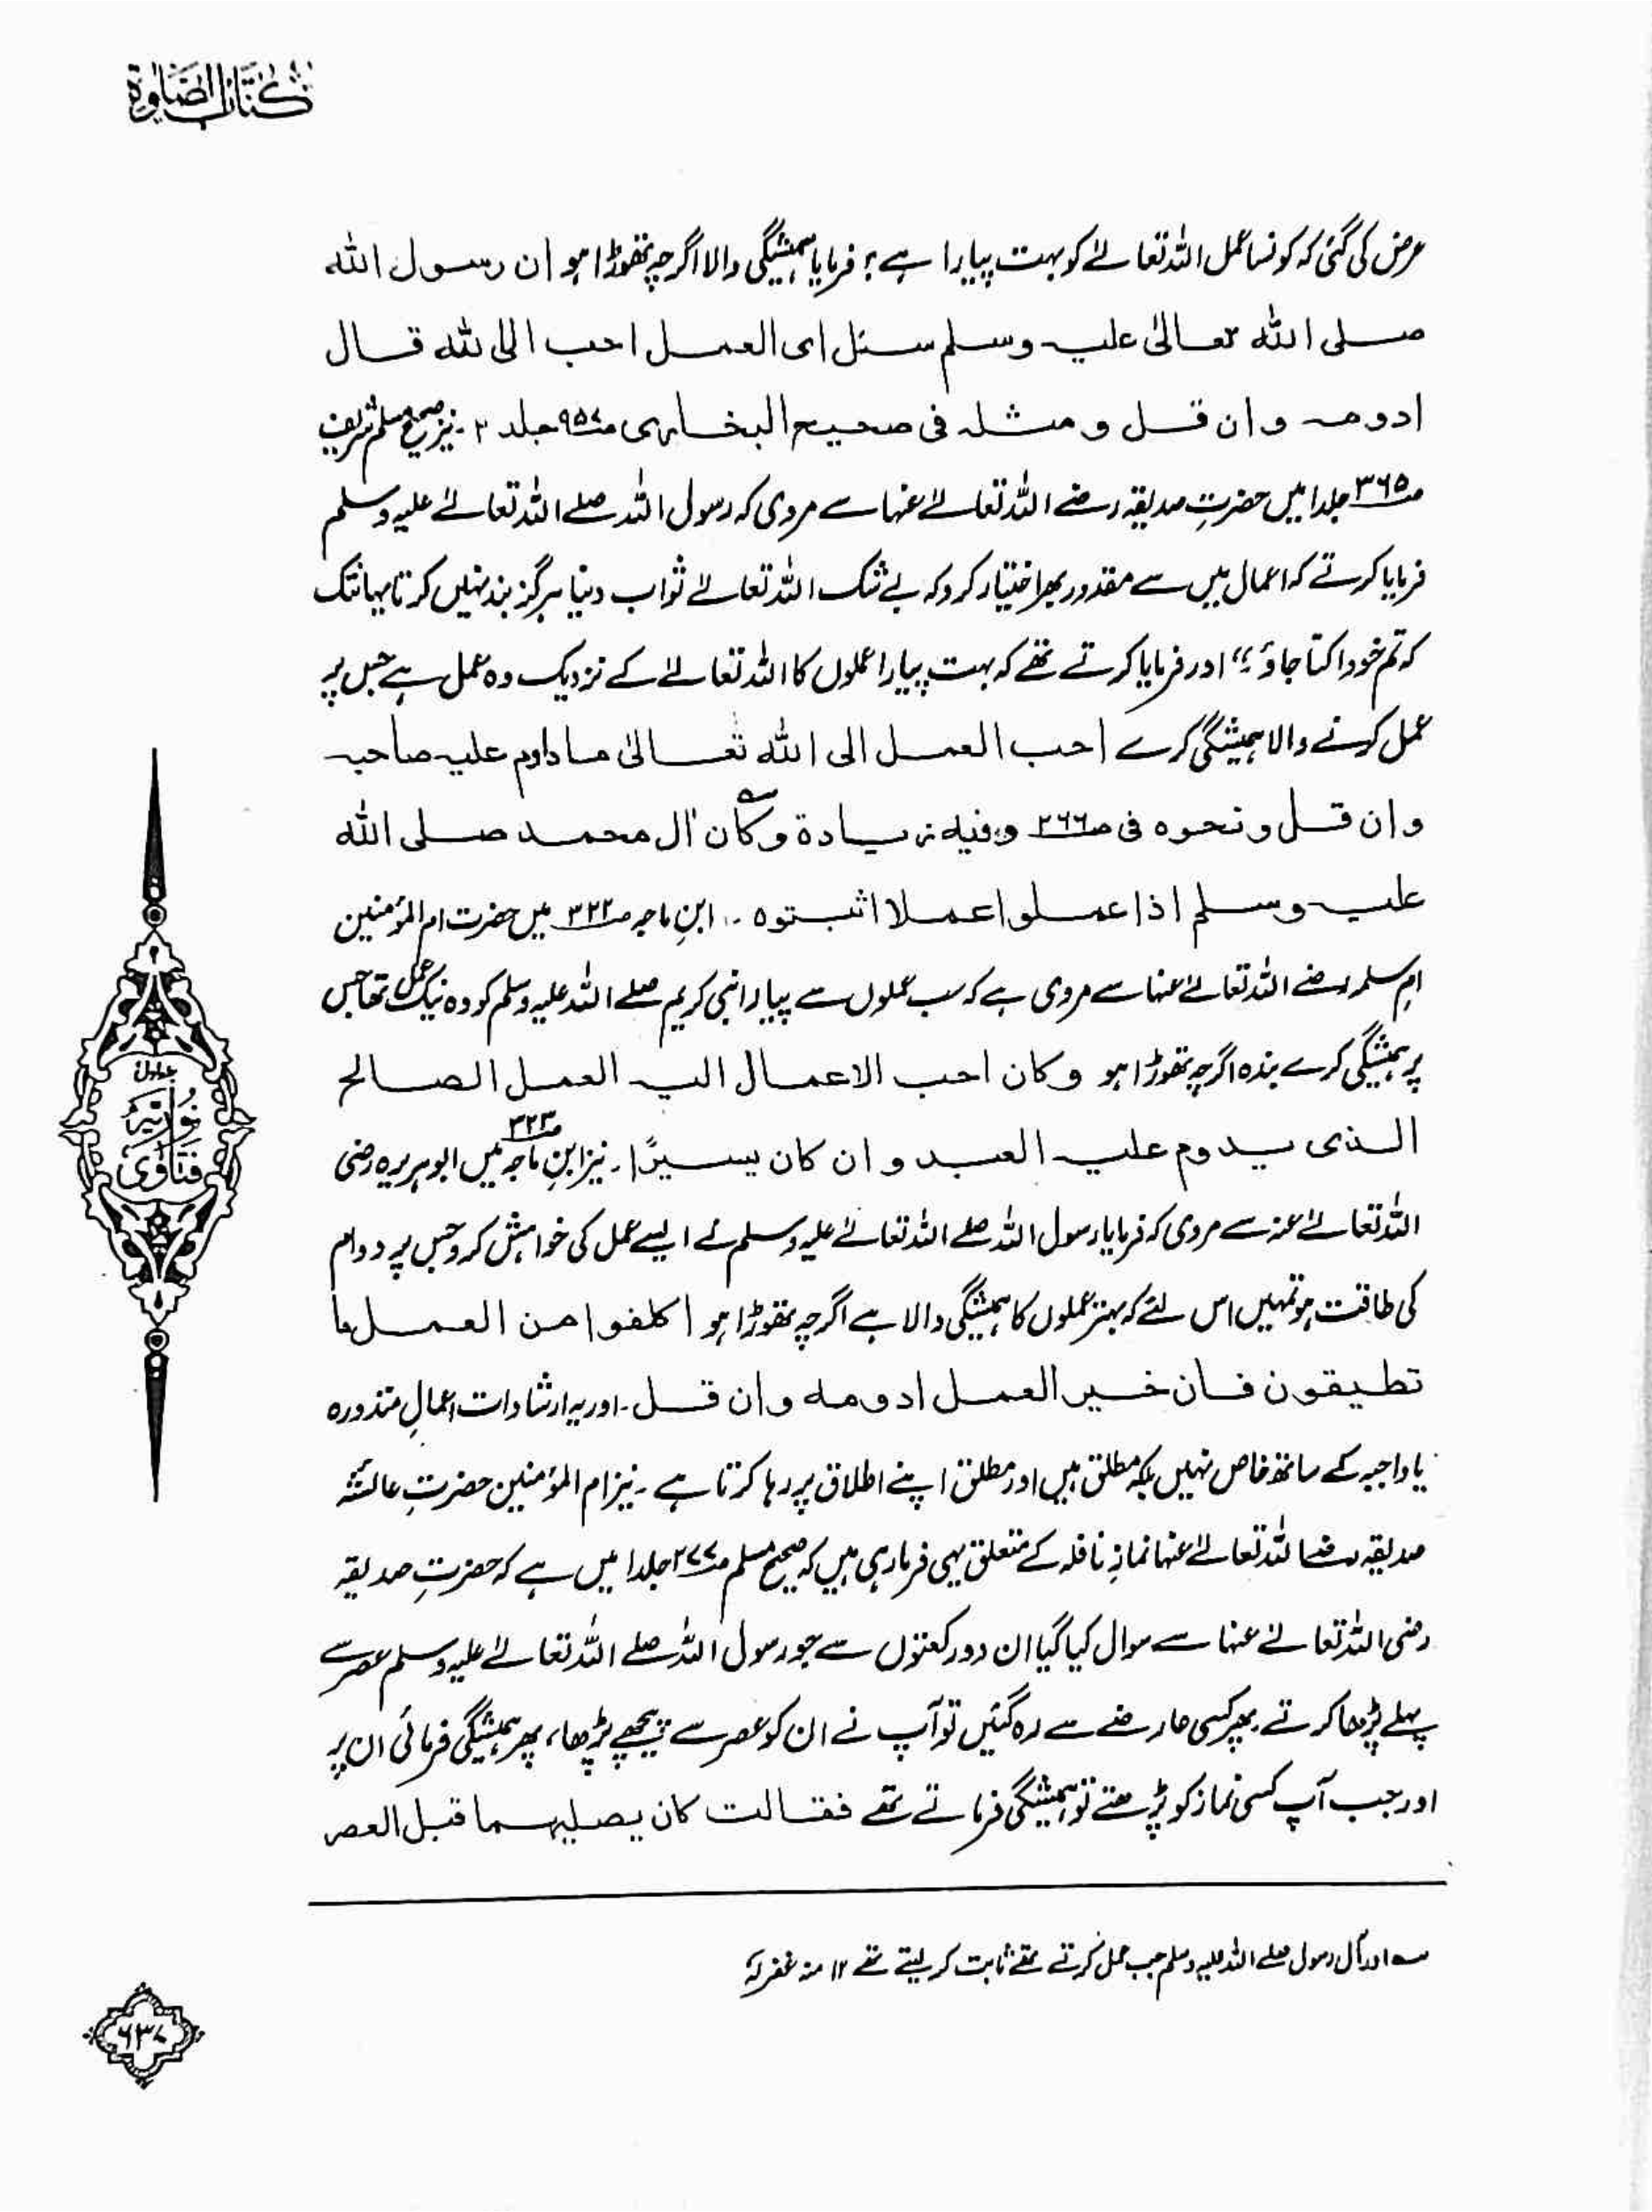 كتاب الصلوة
عرض کی گئی کہ کونسا عمل اللہ تعالےٰ کو بہت پیارا ہے؟ فرمایا ہمیشگی والا اگرچہ تھوڑا ہو ان رسول الله
صلى الله تعالىٰ عليه وسلم سئل اى العمل احب الى الله قال
ادومه وان قل و مثله فى صحيح البخارى ص۹۵۷ جلد ۲۔ نیز صحیح مسلم شریف
ص۳۶۵ جلد۱ میں حضرتِ صدیقہ رضے اللہ تعالےٰ عنہا سے مروی کہ رسول اللہ صلے اللہ تعالےٰ علیہ وسلم
فرمایا کرتے کہ اعمال میں سے مقدور بھر اختیار کرو کہ بے شک اللہ تعالےٰ ثواب دینا ہرگز بند نہیں کرتا یہانتک
کہ تم خود اکتا جاؤ؛“ اور فرمایا کرتے تھے کہ بہت پیارا عملوں کا اللہ تعالےٰ کے نزدیک وہ عمل ہے جس پر
عمل کرنے والا ہمیشگی کرے احب العمل الى الله تعالىٰ ما داوم عليه صاحبه
وان قل و نحوه فى ص۲۶۶ وفيه زيادة وكان اٰل محمد صلى الله
عليه وسلم اذا عملوا عملا اثبتوه ۔. ابنِ ماجہ ص۳۲۲ میں حضرت ام المؤمنین
امِ سلمہ رضے اللہ تعالےٰ عنہا سے مروی ہے کہ سب عملوں سے پیارا نبی کریم صلے اللہ علیہ وسلم کو وہ نیک عمل تھا جس
پر ہمیشگی کرے بندہ اگرچہ تھوڑا ہو وكان احب الاعمال اليه العمل الصالح
الذى يدوم عليه العبد و ان كان يسيرًا۔ نیز ابنِ ماجہ ص۳۲۳ میں ابوہریرہ رضی
اللہ تعالےٰ عنہ سے مروی کہ فرمایا رسول اللہ صلے اللہ تعالےٰ علیہ وسلم نے ایسے عمل کی خواہش کرو جس پر دوام
کی طاقت ہو تمہیں اس لئے کہ بہتر عملوں کا ہمیشگی والا ہے اگرچہ تھوڑا ہو اكلفوا من العمل ما
تطيقون فان خير العمل ادومه وان قل۔ اور یہ ارشادات اعمالِ منذورہ
یا واجبہ کے ساتھ خاص نہیں بلکہ مطلق ہیں اور مطلق اپنے اطلاق پر رہا کرتا ہے۔ نیز ام المؤمنین حضرتِ عائشہ
صدیقہ رضے اللہ تعالےٰ عنہا نمازِ نافلہ کے متعلق یہی فرما رہی ہیں کہ صحیح مسلم ص۲۷۷ جلد۱ میں ہے کہ حضرتِ صدیقہ
رضی اللہ تعالےٰ عنہا سے سوال کیا گیا ان دو رکعتوں سے جو رسول اللہ صلے اللہ تعالےٰ علیہ وسلم عصر سے
پہلے پڑھا کرتے پھر کسی عارضے سے رہ گئیں تو آپ نے ان کو عصر سے پیچھے پڑھا، پھر ہمیشگی فرمائی ان پر
اور جب آپ کسی نماز کو پڑھتے تو ہمیشگی فرماتے تھے فقالت كان يصليهما قبل العصر
ے اور آل رسول صلے اللہ علیہ وسلم جب عمل کرتے تھے ثابت کر لیتے تھے ۱۲ منہ غفرلہٗ
جلد اول
نوریہ
فتاویٰ
۶۳۷